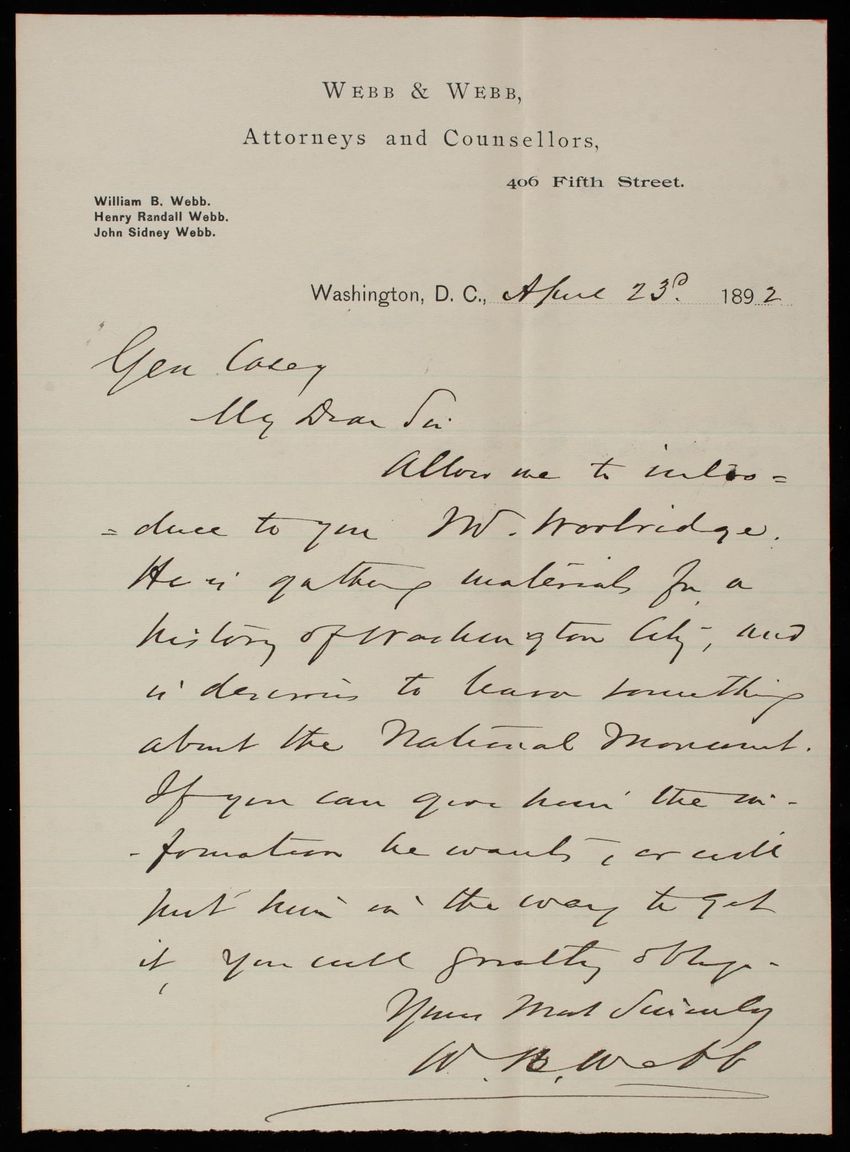 Webb & Webb,
Attorneys and Counsellors,
406 Fifth Street.
William B. Webb.
Henry Randall Webb.
John Sidney Webb.
Washington, D. C., April 23d. 1892
Gen Casey
My Dear Sir
Allow me to intro=
=duce to you Mr. Woolridge.
He is gathering materials for a
history of Washington City, and
is desirous to learn something
about the National Monument.
If you can give him the in-
-formation he wants, or will
put him in the way to get
it, you will greatly oblige-
Yours Most Sincerely
W. B. Webb